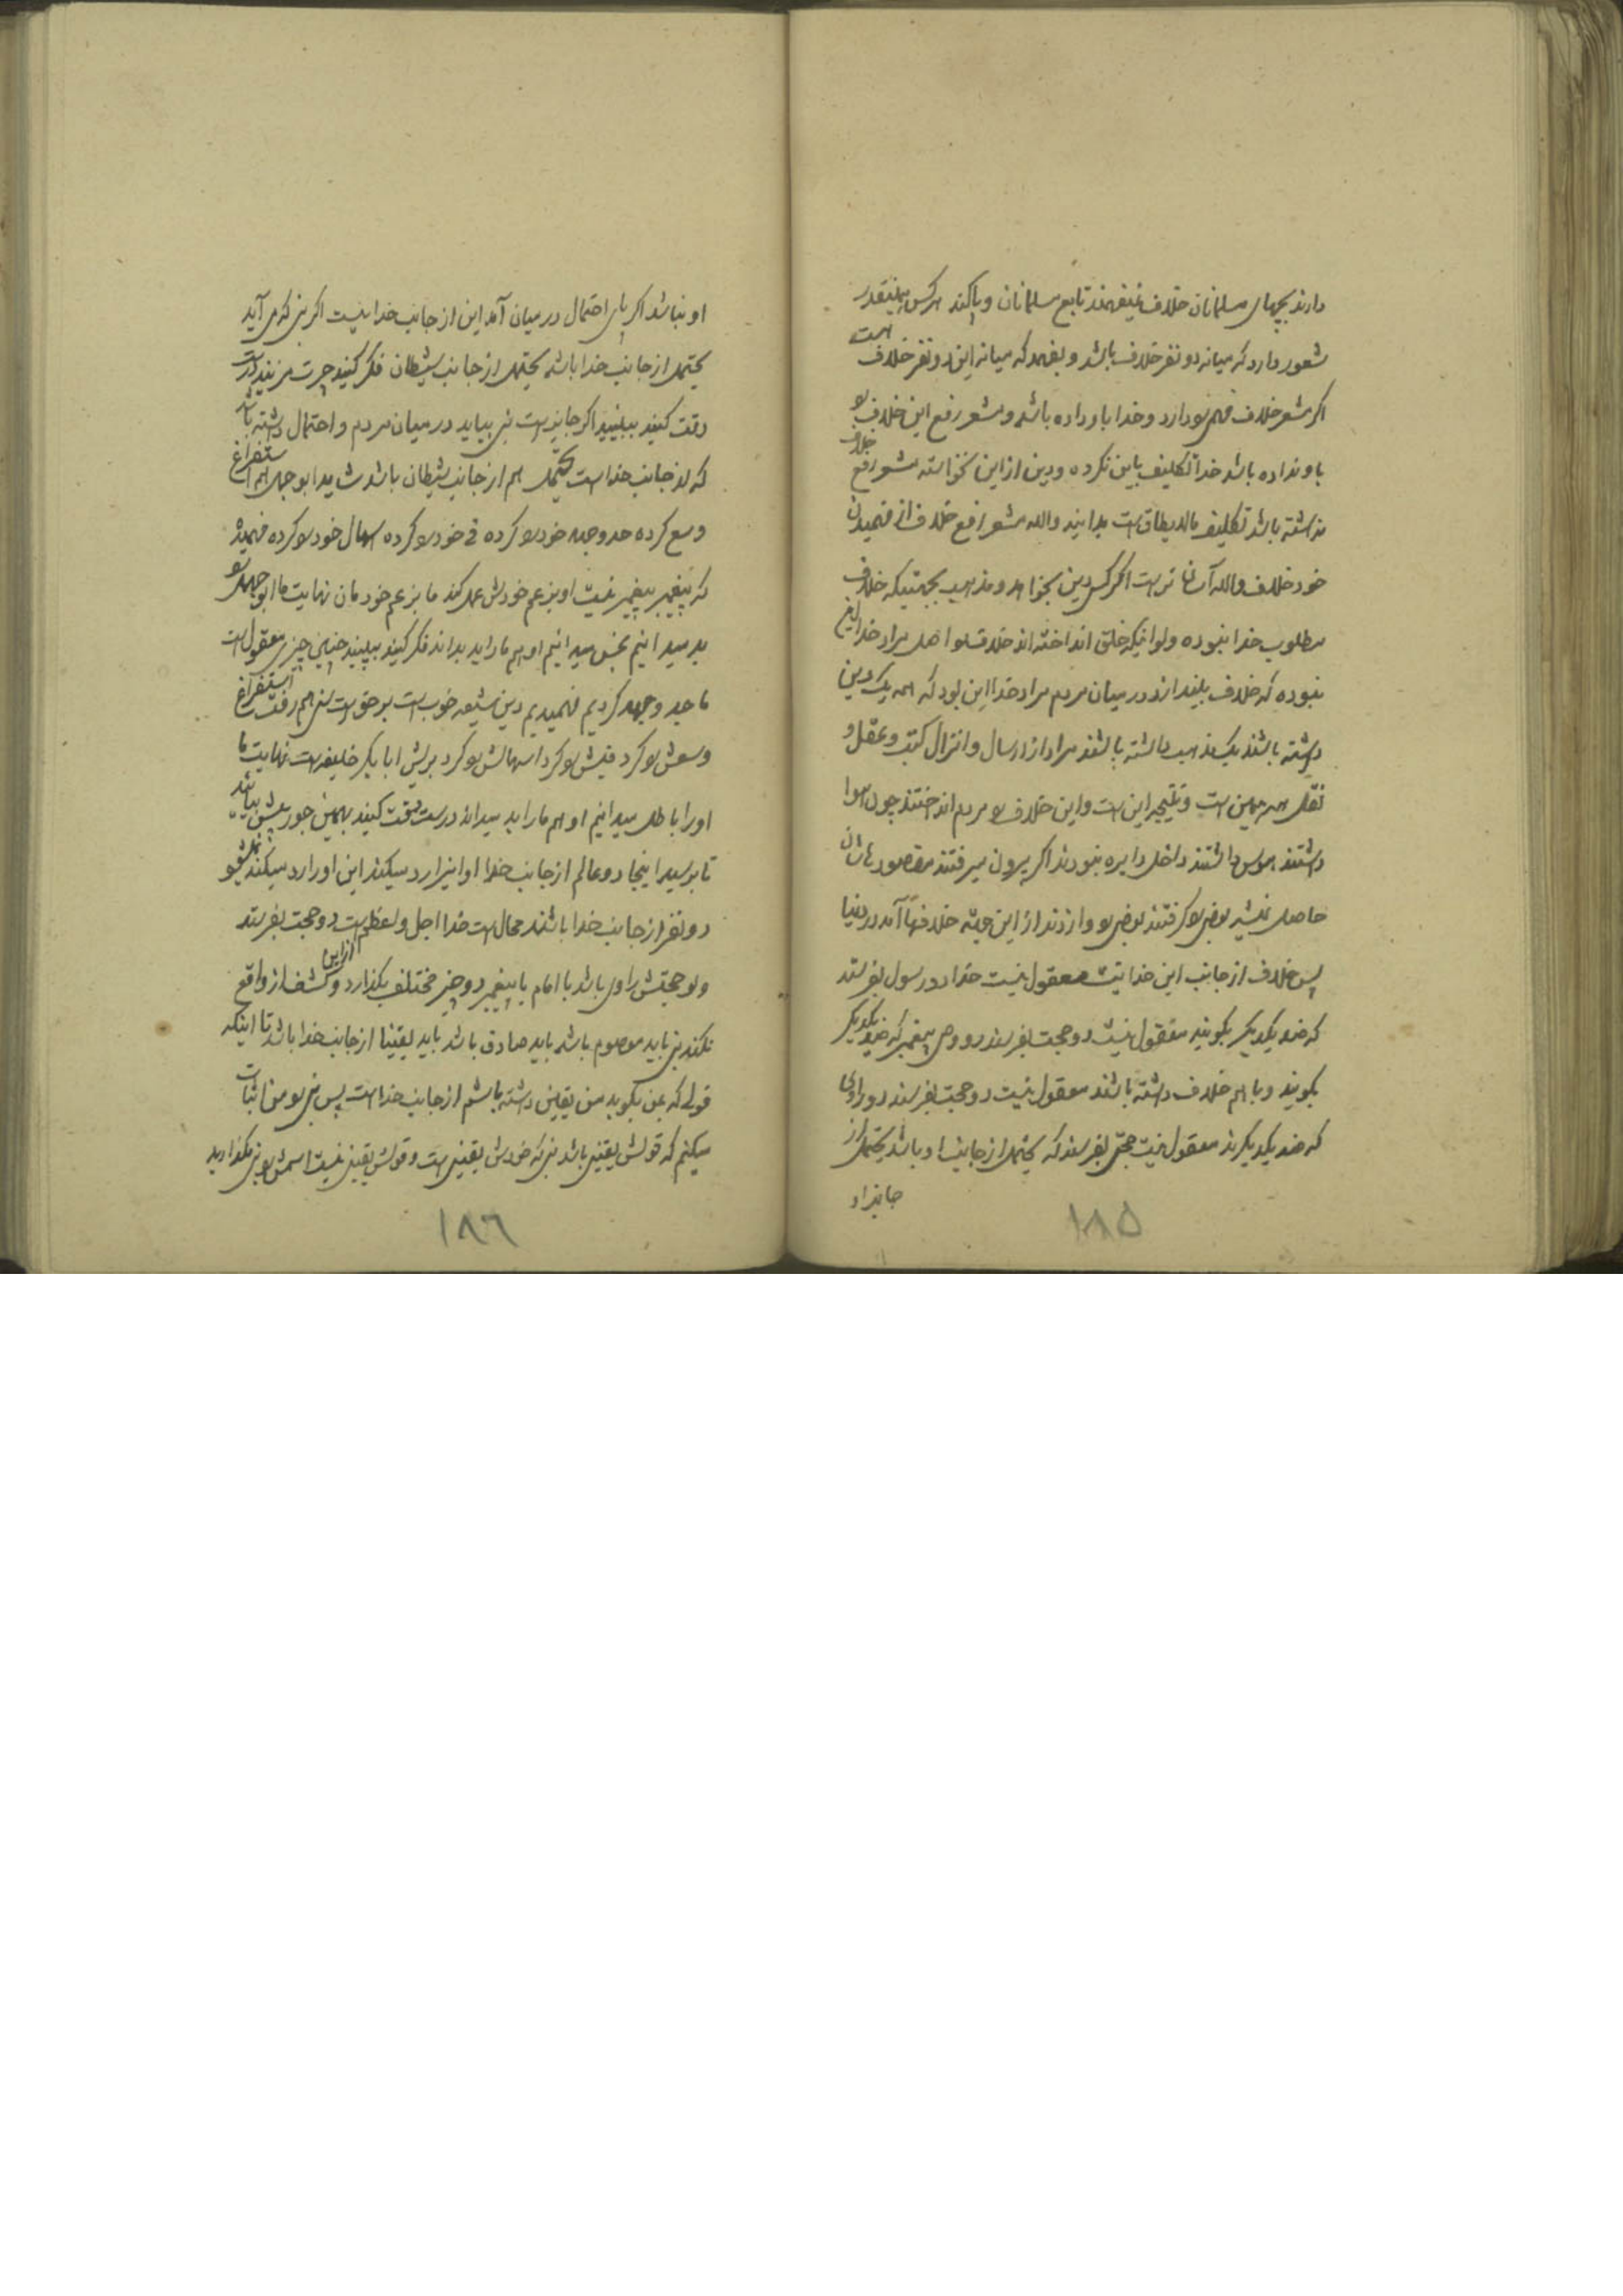 دارند بچهای مسلمانان خلاف نمیفهمند تابع مسلمانان و پاکند هرکس همینقدر
شعور دارد که میانه دو نفر خلاف باشد و بفهمد که میانه این دو نفر خلاف است
اگر مشعر خلاف فهمی را دارد و خدا باو داده باشد و مشعر رفع این خلاف را
باو نداده باشد خدا تکلیف باین نکرده و دین از این نخواسته مشعر رفع خلاف
نداشته باشد تکلیف مالایطاق است بدانید والله مشعر رفع خلاف از فهمیدن
خود خلاف والله آسان تر است اگر کسی دین بخواهد و مذهب بجهتیکه خلاف
مطلوب خدا نبوده ولو اینکه خلق انداخته اند خلاف را و اصل مراد خدا این
نبوده که خلاف بیندازد در میان مردم مراد خدا این بود که همه یک دین
داشته باشند یک مذهب داشته باشند مراد از ارسال و انزال کتب و عقل و
نقل همه همین است و نتیجه این است و این خلاف را مردم انداختند چون هوا
داشتند هوس داشتند داخل دایره نبودند اگر بیرون میرفتند مقصودهاشان
حاصل نمیشد بعضی را گرفتند بعضی را وازدند از این جهة خلافها آمد در دنیا
پس خلاف از جانب این خدا نیست معقول نیست خدا دو رسول بفرستد
که ضد یکدیگر بگویند معقول نیست دو حجت بفرستد دو وصی پیغمبر که ضد یکدیگر
بگویند و با هم خلاف داشته باشند معقول نیست دو حجت بفرستد دو راوی
که ضد یکدیگرند معقول نیست حجتی بفرستد که یحتمل از جانب او باشد یحتمل از
جانب او
١٨٥
او نباشد اگر پای احتمال در میان آمد این از جانب خدا نیست اگر نبی که می آید
یحتمل از جانب خدا باشد یحتمل از جانب شیطان فکر کنید چرت مزنید درست
دقت کنید ببینید اگر جایز است نبی بیاید در میان مردم و احتمال داشته باشد
که از جانب خدا است یحتمل هم از جانب شیطان باشد شاید ابوجهل هم استفراغ
وسع کرده جد و جهد خود را کرده قی خود را کرده اسهال خود را کرده فهمیده
که پیغمبر پیغمبر نیست او بزعم خودش عمل کند ما بزعم خودمان نهایت ما ابوجهل را
بد میدانیم نجس میدانیم او هم ما را بد بداند فکر کنید ببینید چنین چیزی معقول است
ما جد و جهد کردیم فهمیدیم دین شیعه خوب است بر حق است سنی هم رفت استفراغ
وسعش را کرد قیش را کرد اسهالش را کرد برایش ابابکر خلیفه است نهایت ما
او را باطل میدانیم او هم ما را بد میداند درست دقت کنید بهمین جور پیش بیائید
تا برسید اینجا دو عالم از جانب خدا او اینرا رد میکند این او را رد میکند نمیشود
دو نفر از جانب خدا باشند محال است خدا اجل و اعظم است از این دو حجت بفرستد
ولو حجتش راوی باشد یا امام یا پیغمبر دو چیز مختلف بگذارد و کشف از واقع
نکند نبی باید معصوم باشد باید صادق باشد باید یقینا از جانب خدا باشد تا اینکه
قولی که بمن بگوید من یقین داشته باشم از جانب خدا است پس نبی را من اثبات
میکنم که قولش یقینی باشد نبی که خودش یقینی است و قولش یقینی نیست اسمش را نبی نگذارید
١٨٦